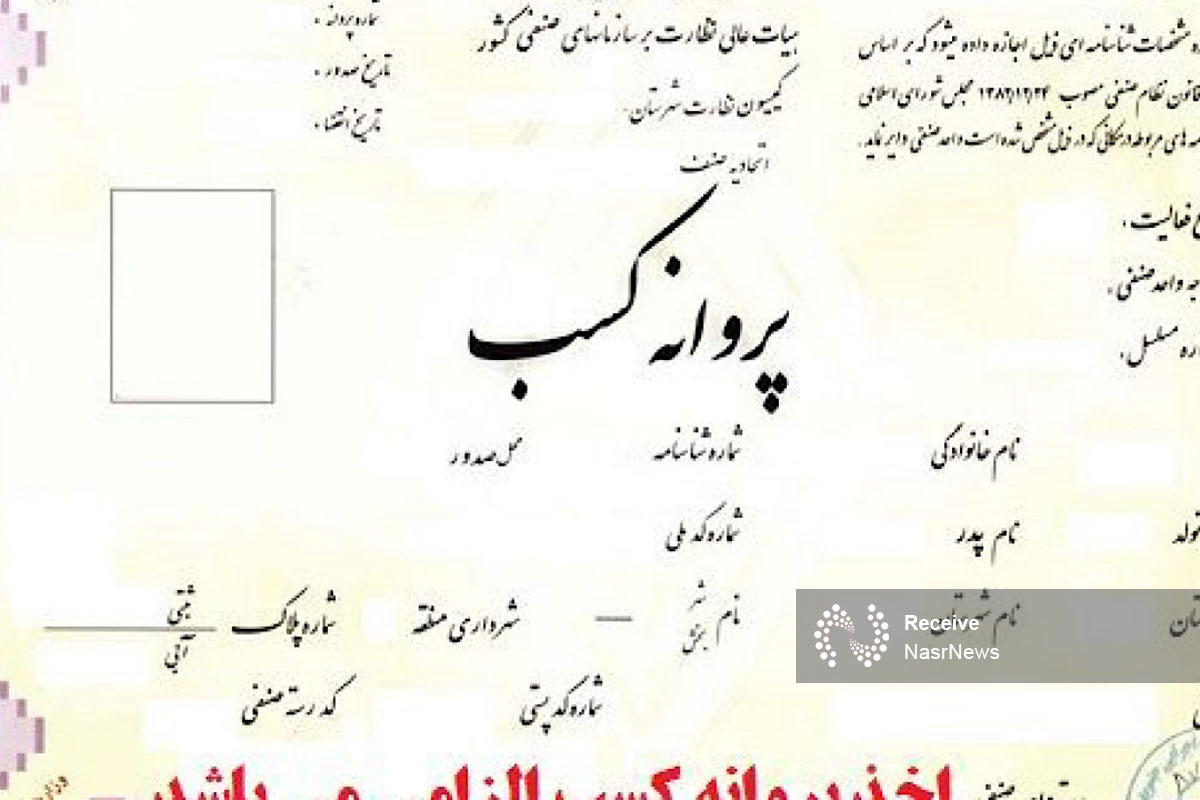 شماره پروانه .
تاریخ صدور .
تاریخ انقضاء .
هیات عالی نظارت بر سازمانهای صنفی کشور
کمیسیون نظارت شهرستان
اتحادیه صنف
مشخصات شناسنامه ای ذیل اجازه داده میشود که بر اساس
قانون نظام صنفی مصوب ۱۳۸۲/۱۲/۲۴ مجلس شورای اسلامی
های مربوطه در مکانی که در ذیل مشخص شده است واحد صنفی دایر نماید .
فعالیت .
واحد صنفی .
مسلسل .
پروانه کسب
نام خانوادگی
شماره شناسنامه
محل صدور
نام پدر
شماره کد ملی
نام شهرستان
نام شهر
بخش
شهرداری منطقه
شماره پلاک ثبتی
آبی
شماره کد پستی
کد رسته صنفی
اخذ پروانه کسب الزامی می باشد
Receive
NasrNews